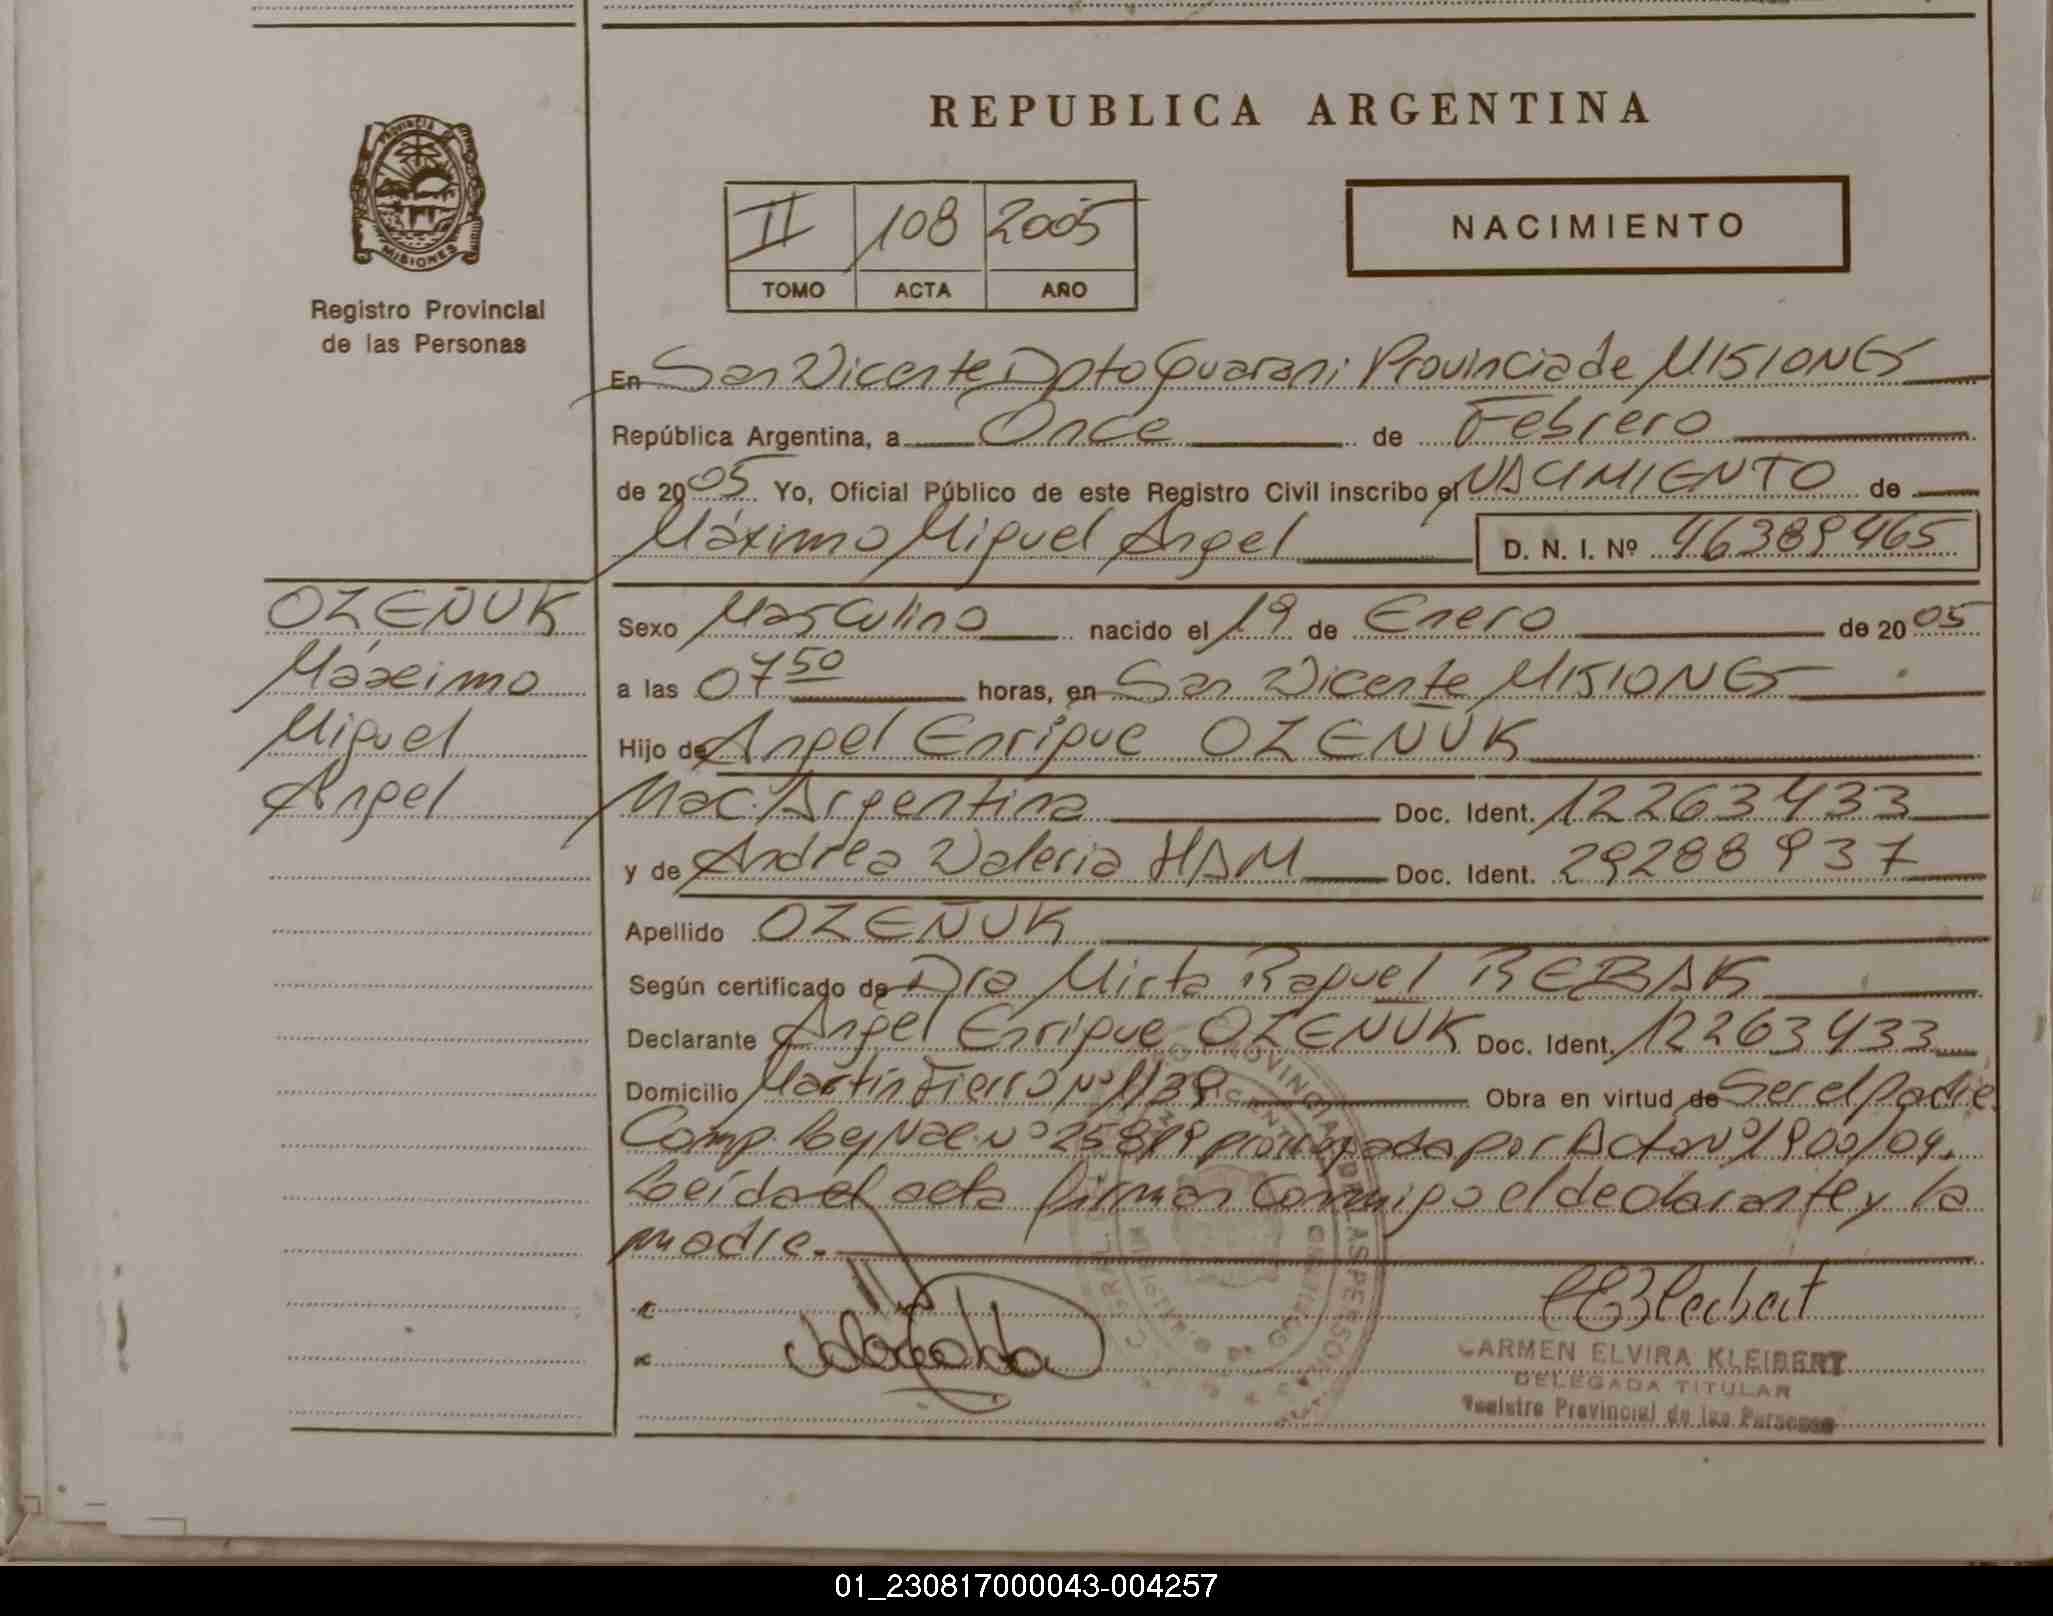 PROVINCIA DE
MISIONES
Registro Provincial
de las Personas
REPUBLICA ARGENTINA
II 108 2005
TOMO ACTA AÑO
NACIMIENTO
En San Vicente Dpto Guarani Provincia de MISIONES
República Argentina, a Once de Febrero
de 2005 Yo, Oficial Público de este Registro Civil inscribo el NACIMIENTO de
Máximo Miguel Angel D. N. I. Nº 46389465
OZEÑUK
Máximo
Miguel
Angel
Sexo Masculino nacido el 19 de Enero de 2005
a las 07 50 horas, en San Vicente MISIONES
Hijo de Angel Enrique OZEÑUK
Nac. Argentina Doc. Ident. 12263433
y de Andrea Valeria HAM Doc. Ident. 29288937
Apellido OZEÑUK
Según certificado de Dra Mirta Raquel REBAK
Declarante Angel Enrique OZEÑUK Doc. Ident. 12263433
Domicilio Martín Fierro Nº 1139 Obra en virtud de Ser el padre.
Comp. Ley Nac. Nº 25819 prorrogada por Acto Nº 1900/04.
Leída el acta firman conmigo el declarante y la
madre.
CARMEN ELVIRA KLEIBERT
DELEGADA TITULAR
Registro Provincial de las Personas
01_230817000043-004257